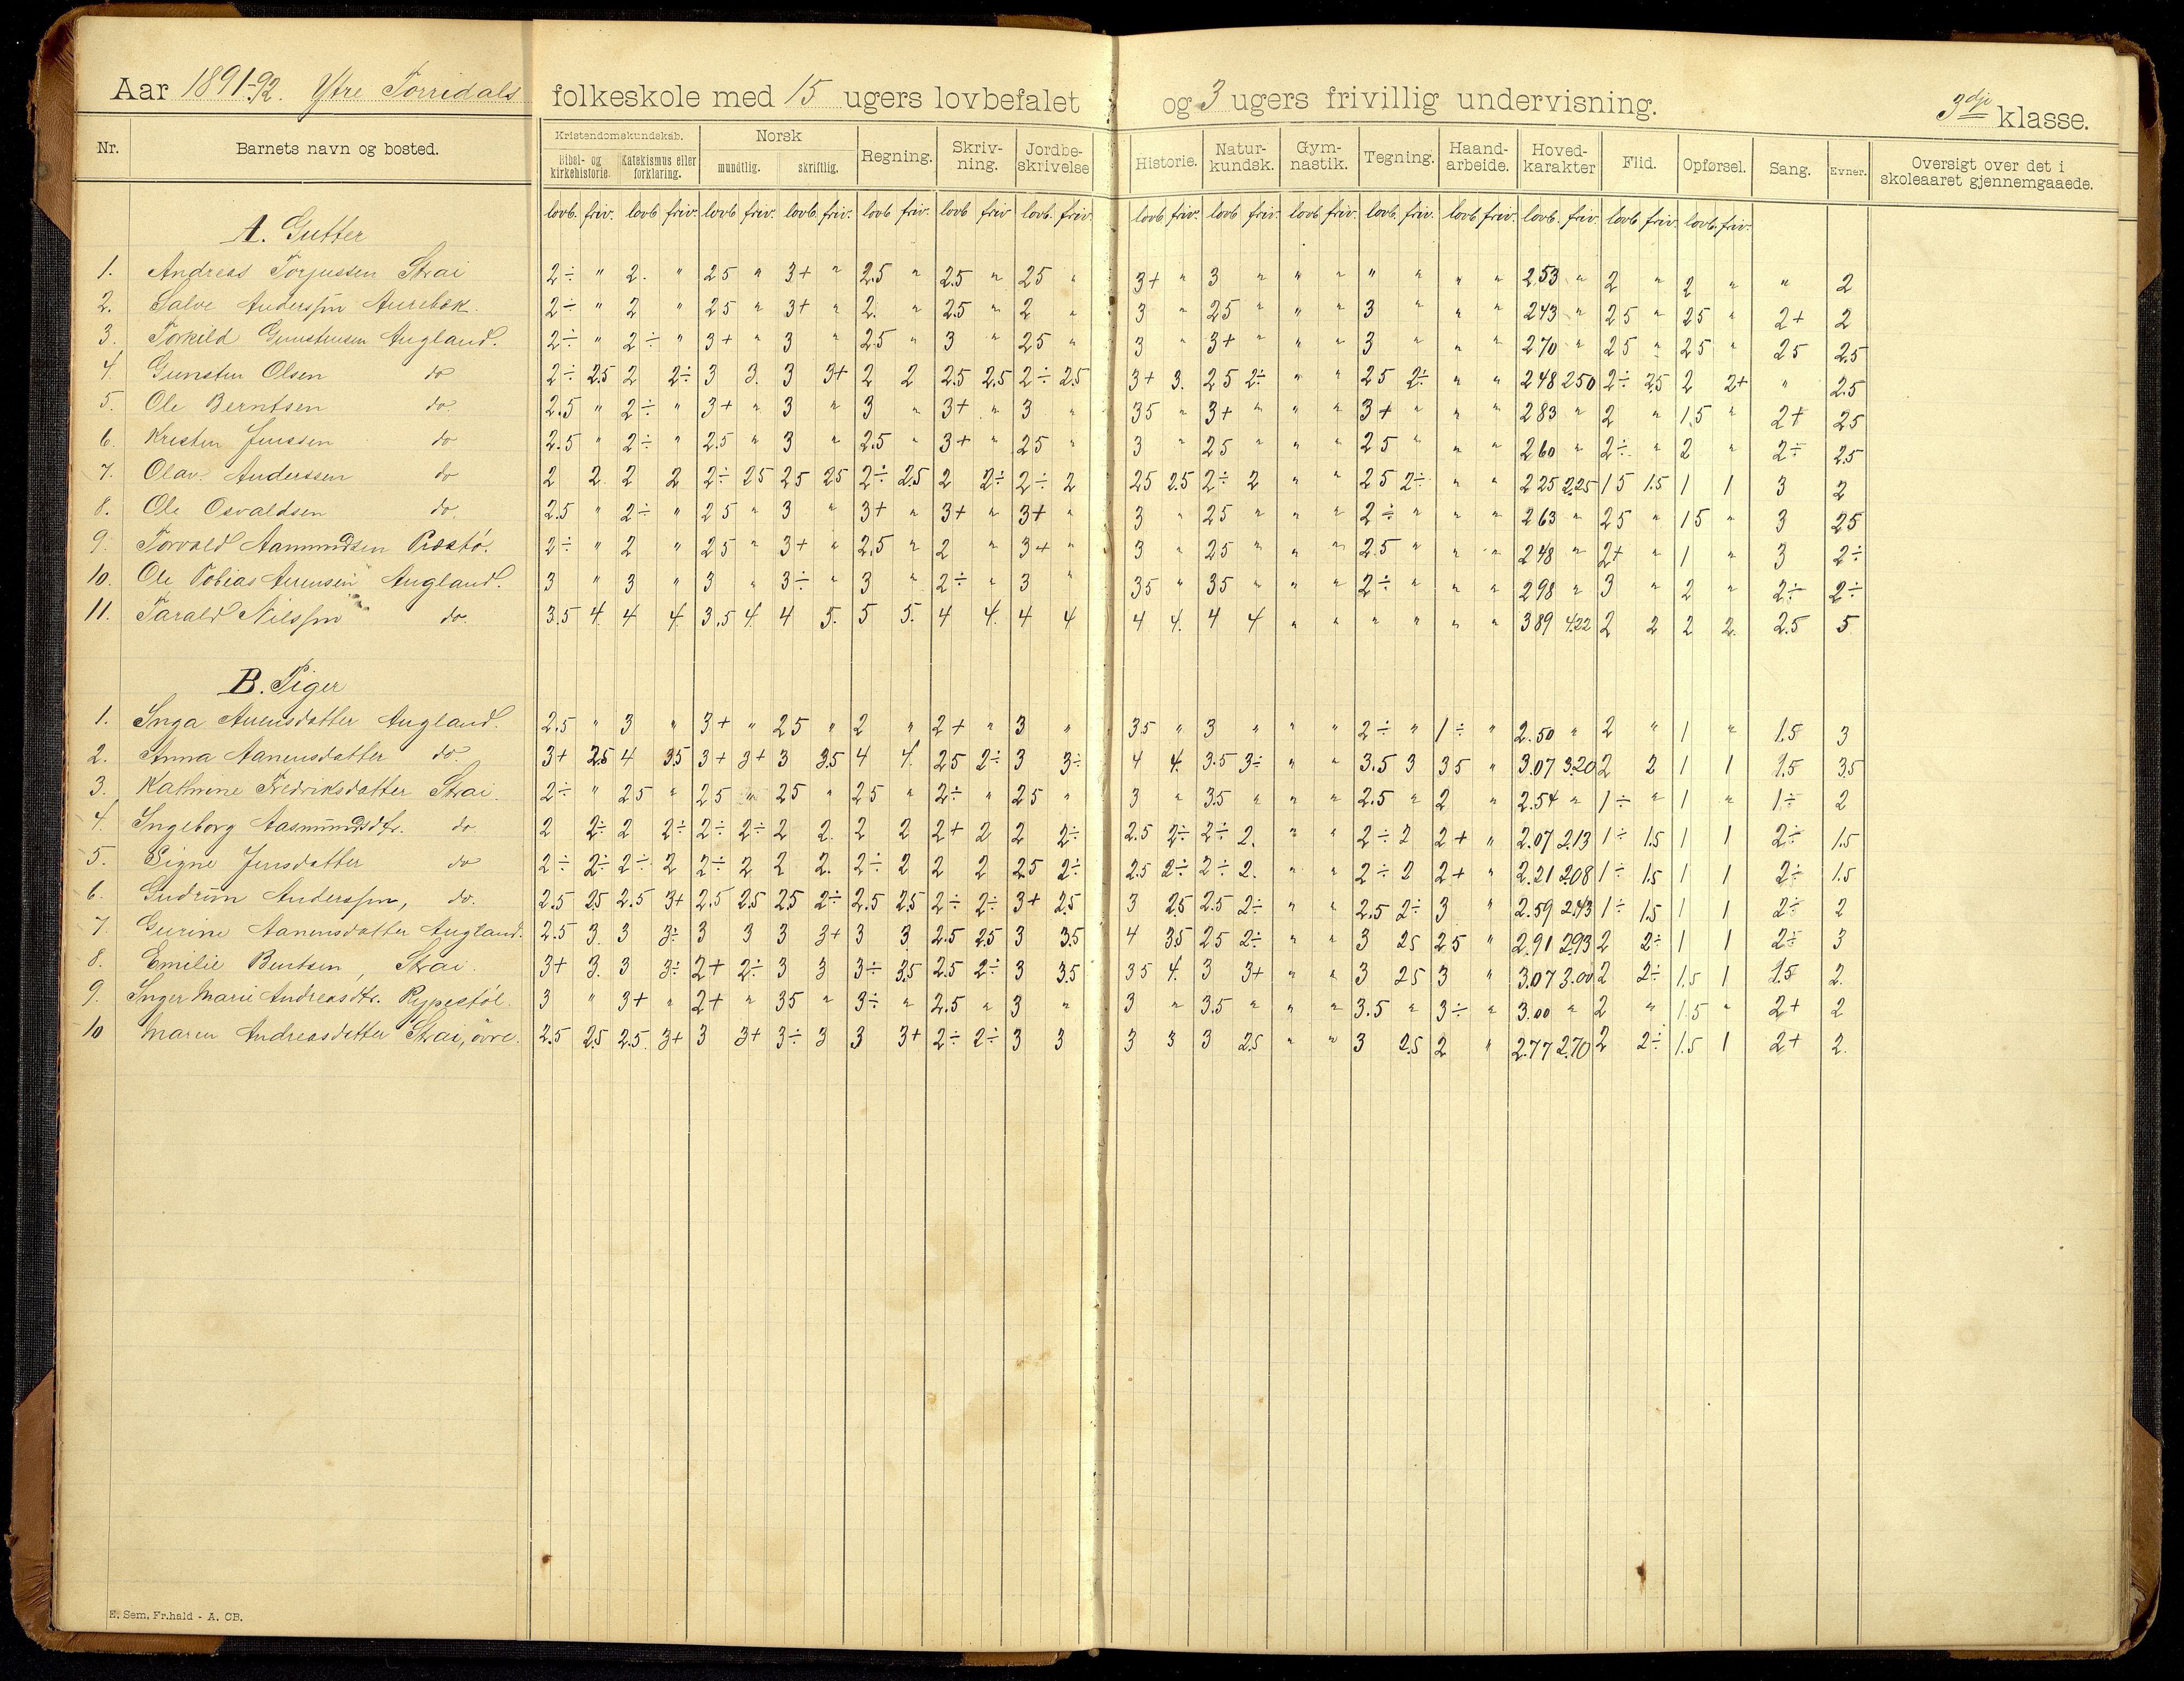 Aar 1891-92. Ytre Torridals folkeskole med 15 ugers lovbefalet og 3 ugers frivillig undervisning. 3dje klasse.
Nr. Barnets navn og bosted. Kristendomskundskab. Bibel- og kirkehistorie. Katekismus eller forklaring. Norsk mundtlig. skriftlig. Regning. Skriv-ning. Jordbe-skrivelse Historie. Natur-kundsk. Gym-nastik. Tegning. Haand-arbeide. Hoved-karakter Flid. Opførsel. Sang. Evner. Oversigt over det i skoleaaret gjennemgaaede.
lovb. friv. lovb friv. lovb friv. lovb. friv. lovb friv. lovb friv lovb. friv. lovb friv. lovb friv. lovb friv. lovb. friv. lovb. friv. lovb. friv. lovb friv. lovb. friv.
A. Gutter
1. Andreas Torjussen Strai 2÷ " 2. " 25 " 3+ " 2.5 " 2.5 " 25 " 3+ " 3 " " " " " " " 2.53 " 2 " 2 " " 2
2. Salve Anderssen Aurebæk. 2÷ " 2 " 25 " 3+ " 2. " 2.5 " 2 " 3 " 25 " " " 3 " " " 243 " 25 " 25 " 2+ 2
3. Torkild Gunstensen Augland. 2÷ " 2÷ " 3+ " 3 " 2.5 " 3 " 25 " 3 " 3+ " " " 3 " " " 270 " 25 " 25 " 25 2.5
4. Gunsten Olsen do 2÷ 2.5 2 2÷ 3 3. 3 3+ 2 2 2.5 2.5 2÷ 2.5 3+ 3. 25 2÷ " " 25 2÷ " " 248 250 2÷ 25 2 2+ " 2.5
5. Ole Berntsen do. 2.5 " 2÷ " 3+ " 3 " 3 " 3+ " 3 " 35 " 3+ " " " 3+ " " " 283 " 2 " 1.5 " 2+ 25
6. Kristen Jenssen do 2.5 " 2÷ " 2.5 " 3 " 2.5 " 3+ " 25 " 3 " 25 " " " 25 " " " 260 " 2÷ " 2 " 2÷ 2.5
7. Olav Anderssen do 2 2 2 2 2÷ 25 25 25 2÷ 2.5 2 2÷ 2÷ 2 25 2.5 2÷ 2 " " 25 2÷ " " 225 2.25 15 1.5 1 1 3 2
8. Ole Osvaldsen do. 2.5 " 2÷ " 25 " 3 " 3+ " 3+ " 3+ " 3 " 25 " " " 2÷ " " " 263 " 25 " 15 " 3 25
9. Torvald Aamundsen Præstø. 2÷ " 2 " 25 " 3+ " 2.5 " 2 " 3+ " 3 " 25 " " " 2.5 " " " 248 " 2+ " 1 " 3 2÷
10. Ole Tobias Aanensen Augland. 3 " 3 " 3 " 3÷ " 3 " 2÷ " 3 " 35 " 35 " " " 2÷ " " " 298 " 3 " 2 " 2÷ 2÷
11. Tarald Nilssen do. 3.5 4. 4 4. 3.5 4. 4 5. 5 5. 4 4. 4 4 4 4. 4 4 " " " " " " 389 4.22 2 2 2 2. 2.5 5
B. Piger
1. Inga Anensdatter Augland. 2.5 " 3 " 3+ " 25 " 2 " 2+ " 3 " 35 " 3 " " " 2÷ " 1÷ " 2.50 " 2 " 1 " 1.5 3
2. Anna Aanensdatter do. 3+ 25 4 35 3+ 3+ 3 3.5 4 4. 25 2÷ 3 3÷ 4 4. 3.5 3÷ " " 3.5 3 35 " 3.07 3.20 2 2 1 1 1.5 3.5
3. Kathrine Fredriksdatter Strai. 2÷ " 25 " 25 " 25 " 25 " 2÷ " 25 " 3 " 3.5 " " " 2.5 " 2 " 2.54 " 1÷ " 1 " 1÷ 2
4. Ingeborg Aasmundsdtr. do 2 2÷ 2 2÷ 2÷ 2÷ 2 2. 2 2 2+ 2 2 2÷ 2.5 2÷ 2÷ 2. " " 2÷ 2 2+ " 2.07 2.13 1÷ 1.5 1 1 2÷ 1.5
5. Signe Jensdatter do 2÷ 2÷ 2÷ 2 2÷ 2 2 2. 2÷ 2 2 2 25 2÷ 2.5 2÷ 2÷ 2. " " 2÷ 2 2+ " 2.21 2.08 1÷ 1.5 1 1 2÷ 1.5
6. Gudrun Anderssen, do. 2.5 25 2.5 3+ 2.5 2.5 25 2÷ 2.5 2.5 2÷ 2÷ 3+ 25 3 25 2.5 2÷ " " 2.5 2÷ 3 " 2.59 2.43 1÷ 1.5 1 1 2÷ 2
7. Gurine Aanensdatter Augland. 2.5 3. 3 3÷ 3 3 3 3+ 3 3. 2.5 25 3 35 4 35 25 2÷ " " 3 25 25 " 2.91 2.93 2 2÷ 1 1 2÷ 3
8. Emilie Bentsen, Strai. 3+ 3. 3 3÷ 2+ 2÷ 3 3 3÷ 3.5 2.5 2÷ 3 35 35 4. 3 3+ " " 3 25 3 " 3.07 3.00 2 2÷ 1.5 1 1.5 2.
9. Inger Marie Andreasdtr. Rypestøl. 3 " 3+ " 2+ " 35 " 3÷ " 2.5 " 3 " 3 " 3.5 " " " 3.5 " 3÷ " 3.00 " 2 " 1.5 " 2+ 2
10 Maren Andreasdatter Strai, øvre. 2.5 25 2.5 3+ 3 3+ 3÷ 3 3 3+ 2÷ 2÷ 3 3 3 3 3 2.5 " " 3 2.5 2 " 2.77 2.70 2 2÷ 1.5 1 2+ 2.
E. Sem, Fr.hald - A. CB.